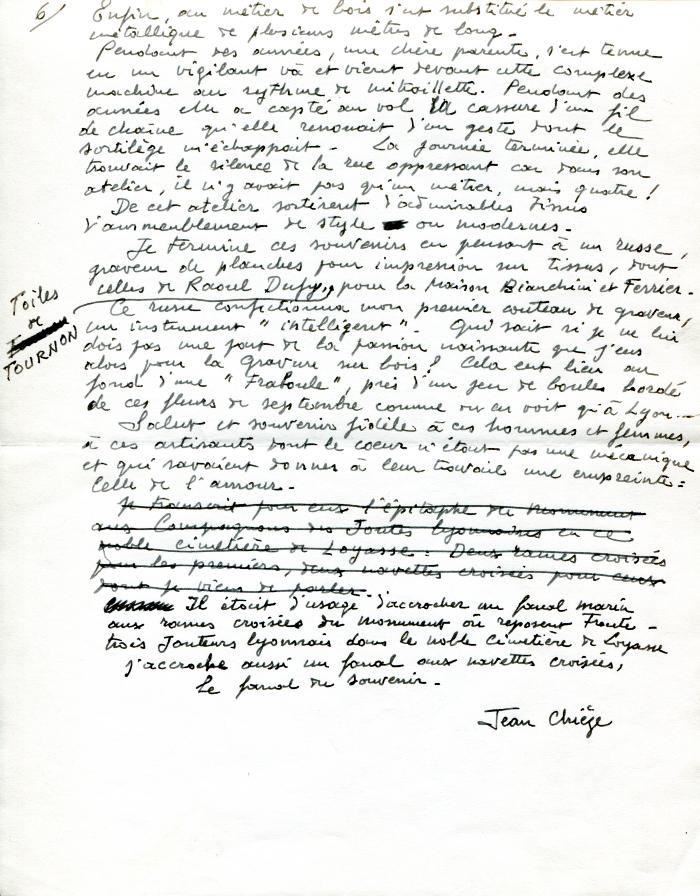 6/ Enfin, au métier de bois s'est substitué le métier
métallique de plusieurs mètres de long.
Pendant des années, une chère parente, s'est tenue
en un vigilant va et vient devant cette complexe
machine au rythme de mitraillette. Pendant des
années elle a capté au vol la cassure d'un fil
de chaîne qu'elle renouait d'un geste dont le
sortilège m'échappait - La journée terminée, elle
trouvait le silence de la rue oppressant car dans son
atelier, il n'y avait pas qu'un métier, mais quatre !
De cet atelier sortirent d'admirables tissus
d'ameublement de style ou modernes -
Je termine ces souvenirs en pensant à un russe,
graveur de planches pour impression sur tissus, dont
celles de Raoul Dufy, pour la Maison Bianchini et Ferrier -
Toiles
de
TOURNON
Ce russe confectionna mon premier couteau de graveur,
un instrument "intelligent" - Qui sait si je ne lui
dois pas une part de la passion naissante que j'eus
alors pour la Gravure sur bois ? Cela eut lieu au
fond d'une "Traboule", près d'un jeu de boules bordé
de ces fleurs de septembre comme on en voit qu'à Lyon -
Salut et souvenir fidèle à ces hommes et femmes,
à ces artisants dont le coeur n'était pas une mécanique
et qui savaient donner à leur travail une empreinte :
Celle de l'amour -
Je transcrit pour eux l'épitaphe du Monument
aux Compagnons des Joutes lyonnaises en ce
noble cimetière de Loyasse : Deux rames croisées
pour les premiers, deux navettes croisées pour ceux
dont je viens de parler
Il était d'usage d'accrocher un fanal marin
aux rames croisées du monument où reposent Trente -
trois Jouteurs lyonnais dans le noble Cimetière de Loyasse
J'accroche aussi un fanal aux navettes croisées,
Le fanal du souvenir -
Jean Chièze